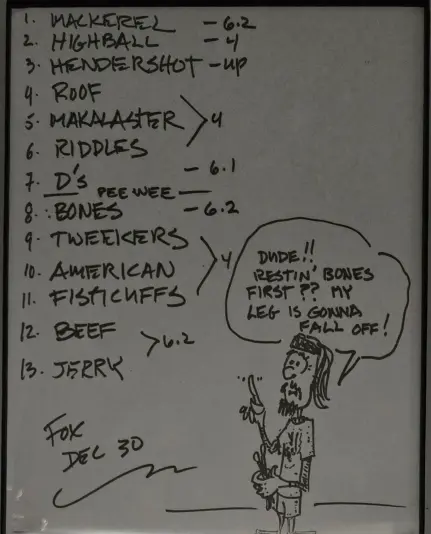 1. MACKEREL - 6.2
2. HIGHBALL - 4
3. HENDERSHOT - UP
4. ROOF
5. MAKALASTER > 4
6. RIDDLES
7. D's - 6.1
PEEWEE
8. BONES - 6.2
9. TWEEKERS
10. AMERICAN > 4
11. FISTICUFFS
12. BEEF
> 6.2
13. JERRY
DUDE!!
RESTIN' BONES
FIRST?? MY
LEG IS GONNA
FALL OFF!
FOX
DEC 30